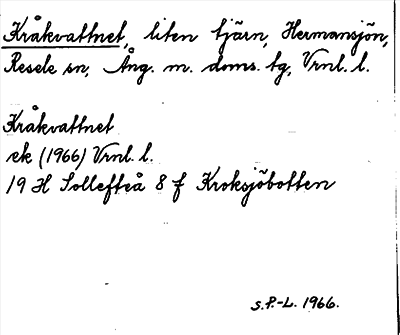 Kråkvattnet, liten tjärn, Hermansjön,
Resele sn, Ång. m. doms. tg, Vrnl. l.
Kråkvattnet
ek (1966) Vrnl. l.
19 H Sollefteå 8 f Kroksjöbotten
S.P.-L. 1966.